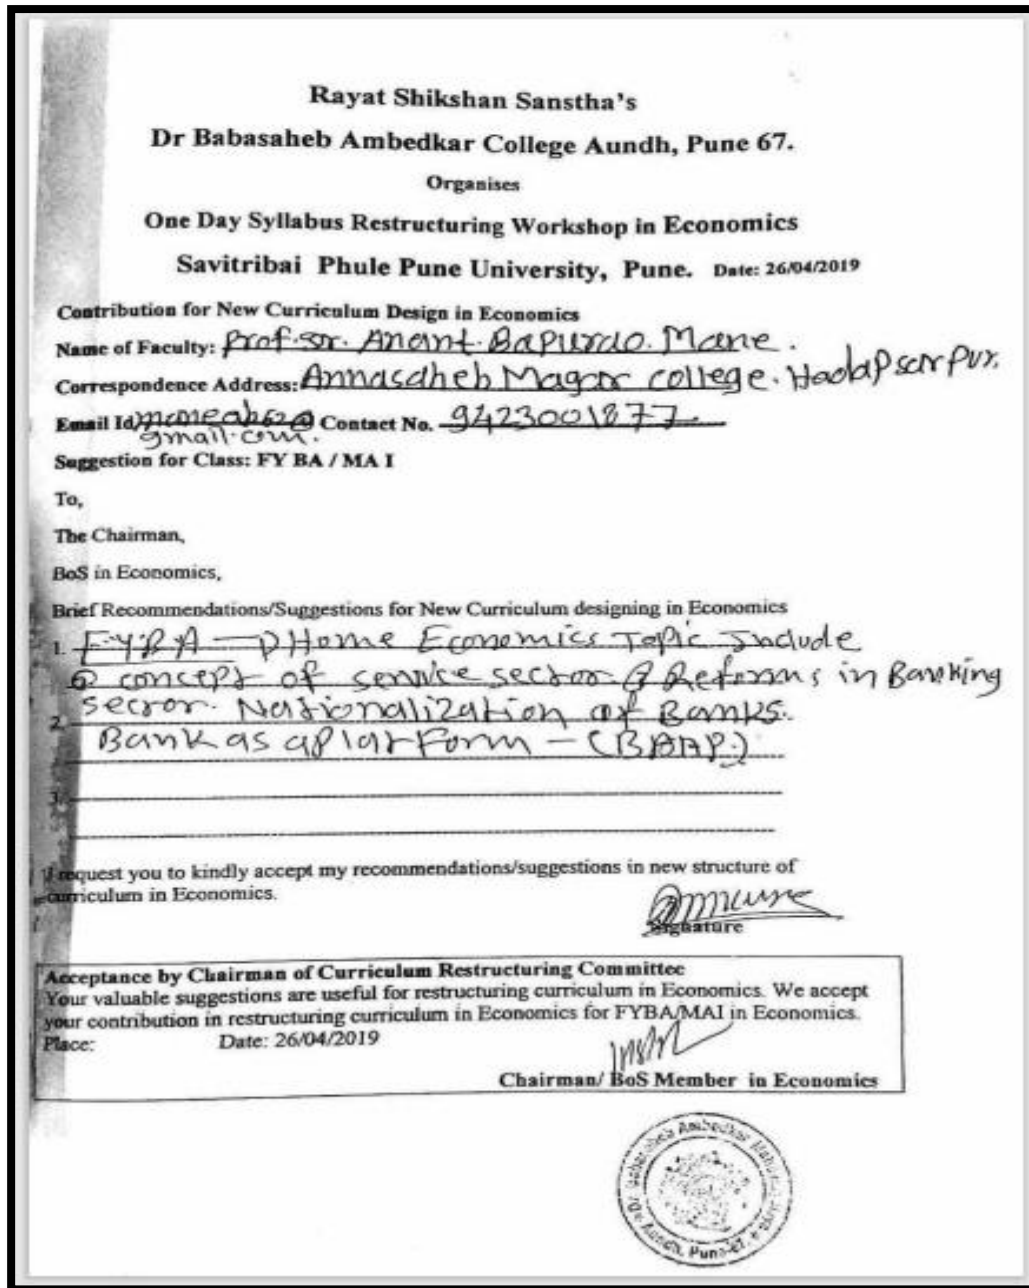 Rayat Shikshan Sanstha's
Dr Babasaheb Ambedkar College Aundh, Pune 67.
Organises
One Day Syllabus Restructuring Workshop in Economics
Savitribai Phule Pune University, Pune. Date: 26/04/2019
Contribution for New Curriculum Design in Economics
Name of Faculty: Prof. Anant. Bapurao. Mane.
Correspondence Address: Annasaheb Magar college. Hadapsar
Email Id gmail.com. Contact No. 9423001877
Suggestion for Class: FY BA / MA I
To,
The Chairman,
BoS in Economics,
Brief Recommendations/Suggestions for New Curriculum designing in Economics
1. F.Y.B.A Home Economics Topic Include
concept of service sector Reforms in Banking
2. sector. Nationalization of Banks.
Bank as a platform - (BAAP.)
3.
I request you to kindly accept my recommendations/suggestions in new structure of
curriculum in Economics.
Signature
Acceptance by Chairman of Curriculum Restructuring Committee
Your valuable suggestions are useful for restructuring curriculum in Economics. We accept
your contribution in restructuring curriculum in Economics for FYBA/MAI in Economics.
Place: Date: 26/04/2019
Chairman/ BoS Member in Economics
Dr. Babasaheb Ambedkar Aundh, Pune-67.